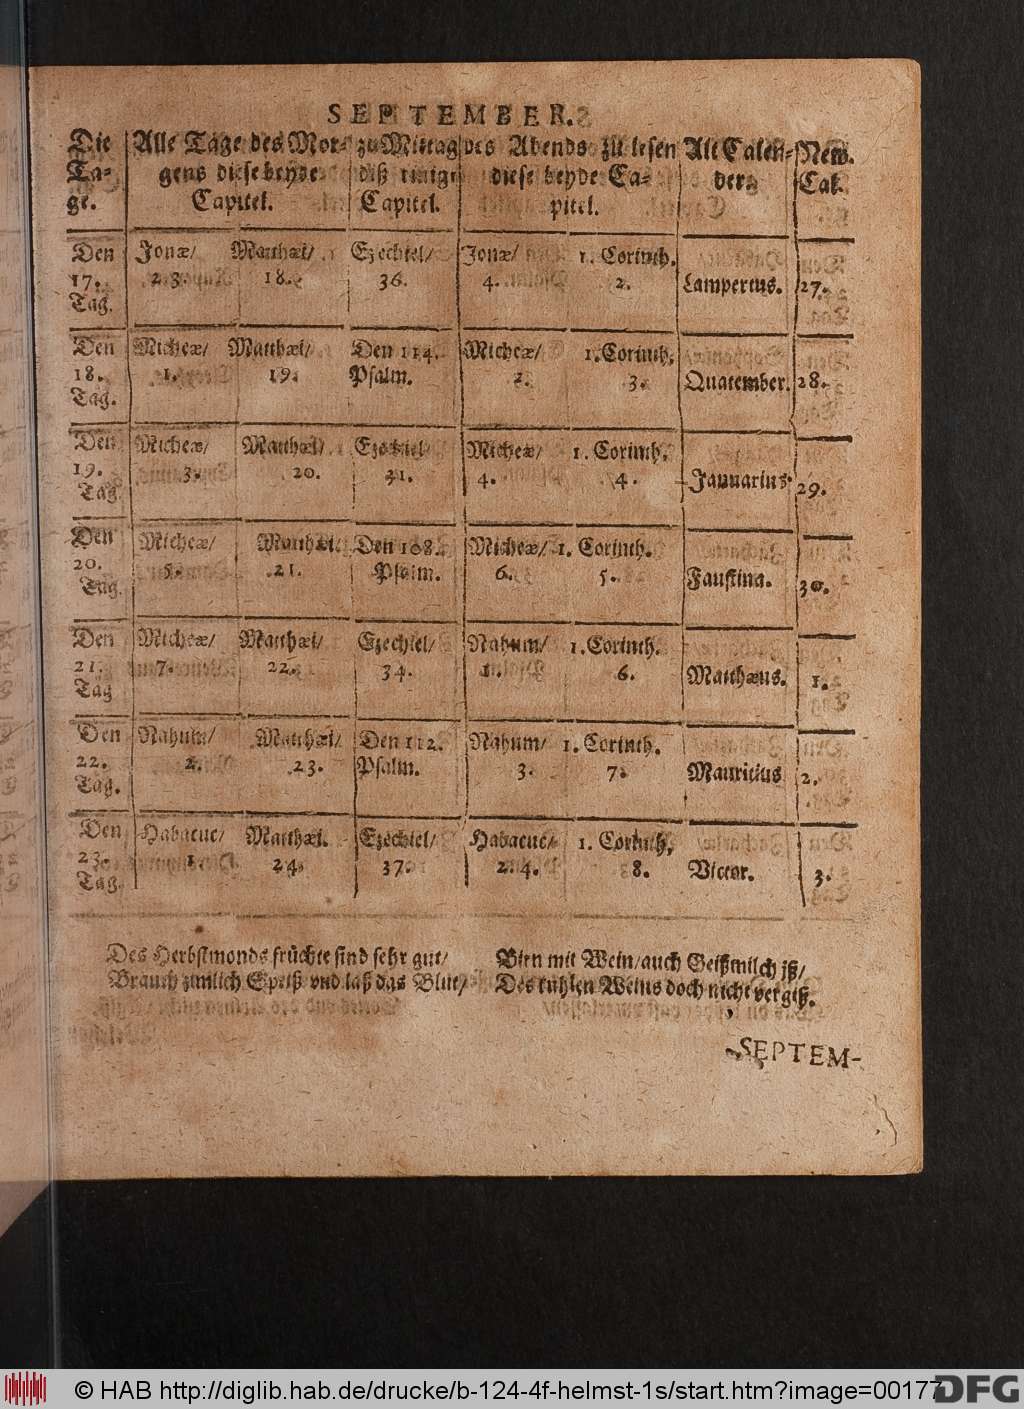 SEPTEMBER.
Die Alle Tage des Mor- zu Mittag des Abends zu lesen Alt Calen- New.
Ta- gens diese beyde diß einige diese beyde Ca- der. Cal.
ge. Capitel. Capitel. pitel.
Den Jonæ/ Matthæi/ Ezechiel/ Jonæ/ 1. Corinth.
17. 2. 3. 18. 36. 4. 2. Lampertus. 27.
Tag.
Den Micheæ/ Matthæi/ Den 114. Micheæ/ 1. Corinth.
18. 1. 19. Psalm. 2. 3. Quatember. 28.
Tag.
Den Micheæ/ Matthæi/ Ezechiel/ Micheæ/ 1. Corinth.
19. 3. 20. 4. 4. Januarius. 29.
Tag
Den Micheæ/ Matthæi. Den 108. Micheæ/ 1. Corinth.
20. 5. 21. Psalm. 6. 5. Faustina. 30.
Tag.
Den Micheæ/ Matthæi/ Ezechiel/ Nahum/ 1. Corinth.
21. 7. 22. 34. 1. 6. Matthæus. 1.
Tag
Den Nahum/ Matthæi/ Den 112. Nahum/ 1. Corinth.
22. 2. 23. Psalm. 3. 7. Mauritius 2.
Tag.
Den Habacuc/ Matthæi. Ezechiel/ Habacuc/ 1. Corinth,
23. 1. 24. 37. 2. 4. 8. Victor. 3.
Tag.
Des Herbstmonds früchte sind sehr gut/
Brauch zimlich Speiß vnd laß das Blut/
Birn mit Wein/auch Geißmilch jß/
Des kühlen Weins doch nicht vergiß.
SEPTEM-
© HAB http://diglib.hab.de/drucke/b-124-4f-helmst-1s/start.htm?image=00177
DFG